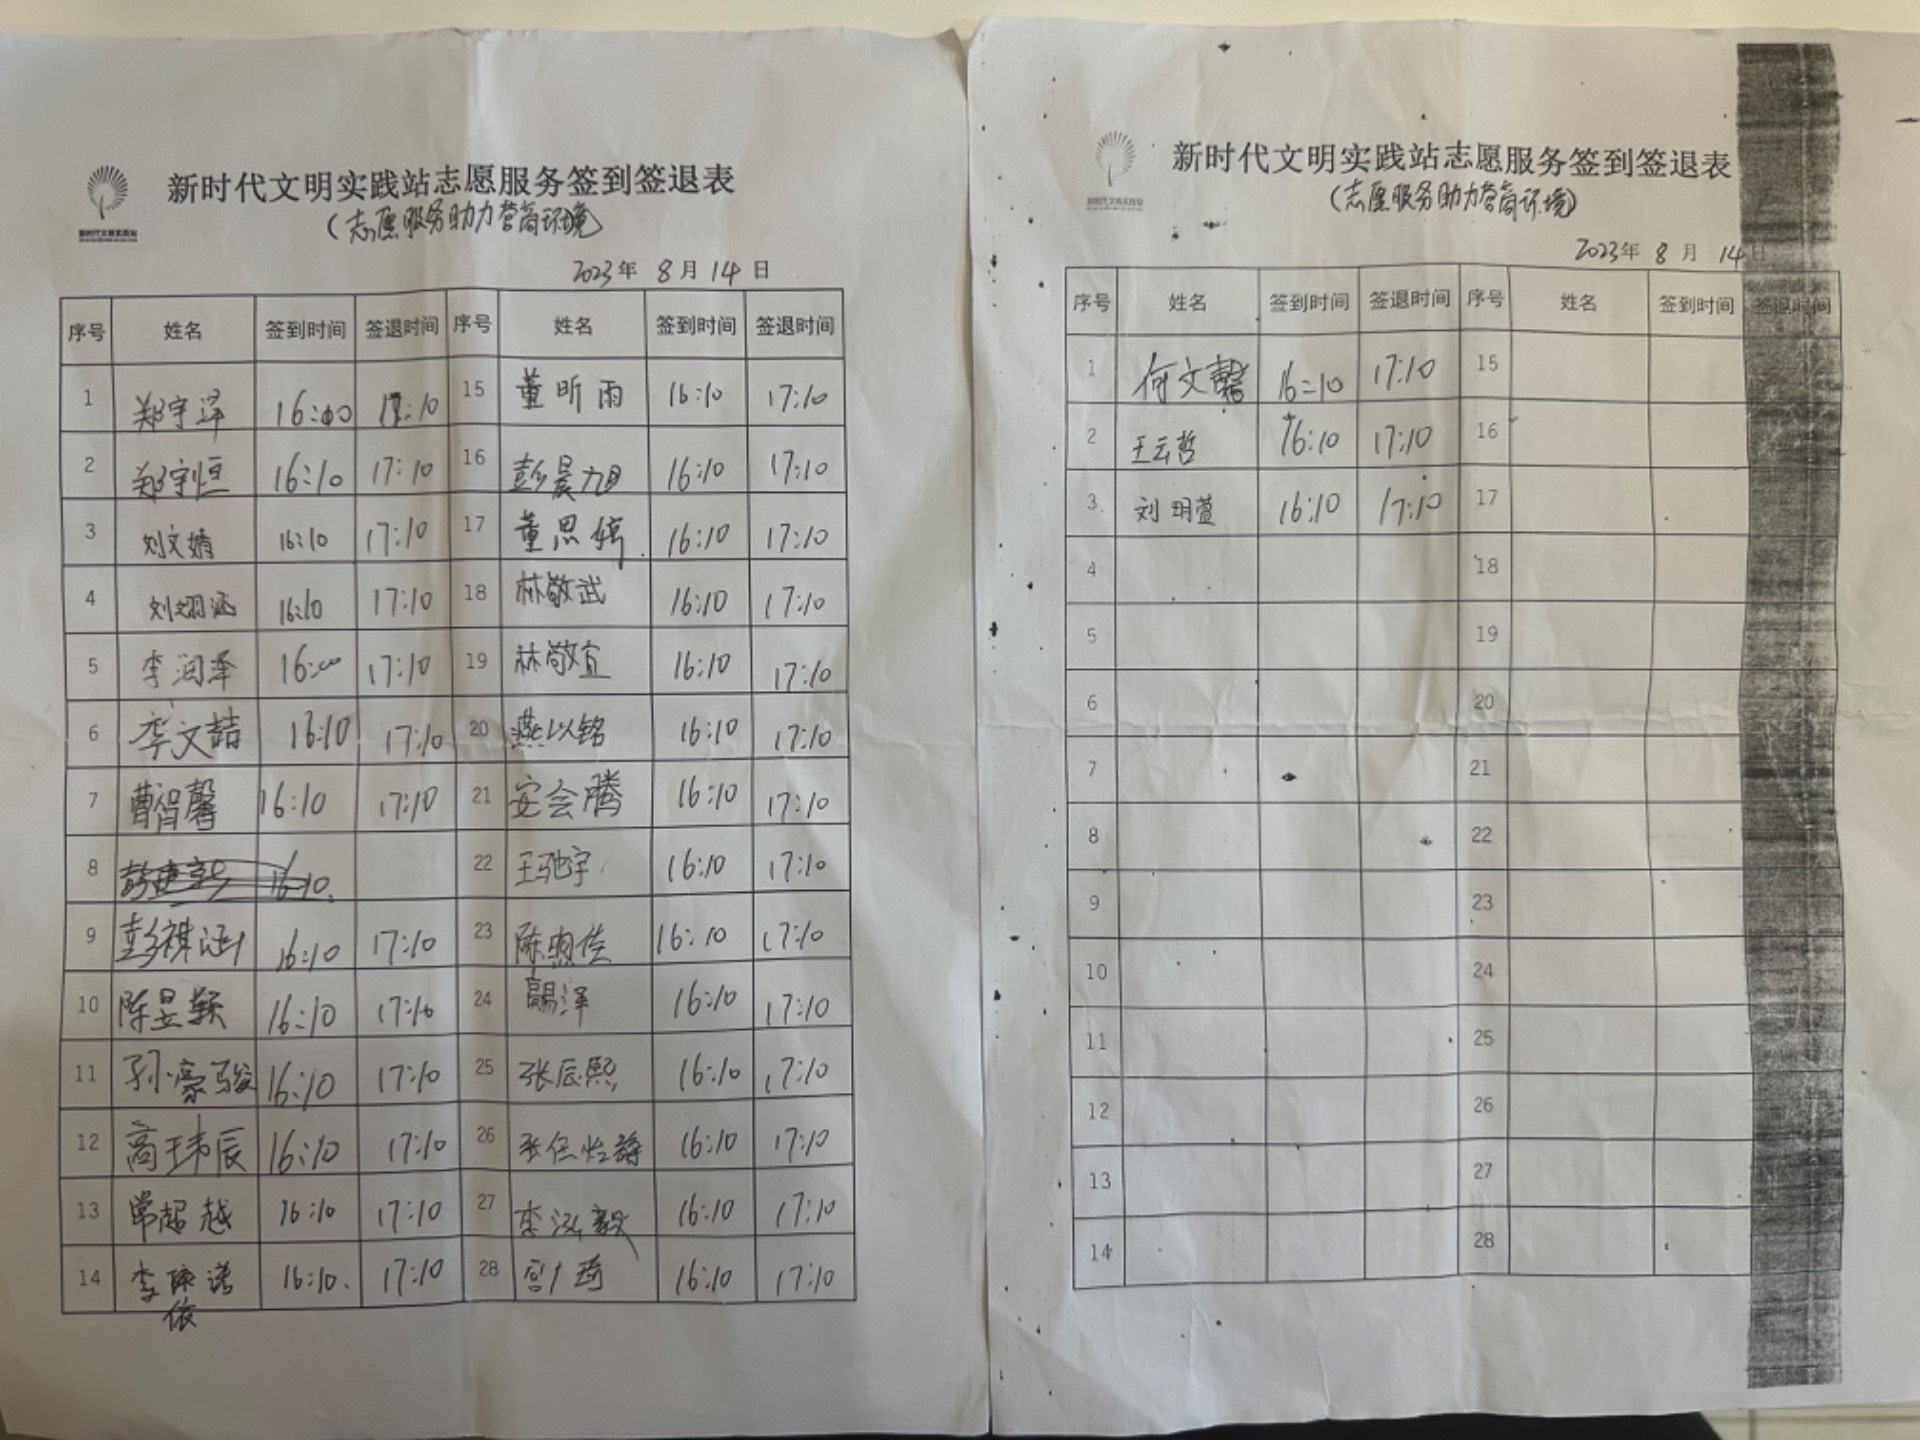 新时代文明实践站志愿服务签到签退表
(志愿服务助力营商环境)
新时代文明实践站
2023年 8月 14日
序号 姓名 签到时间 签退时间 序号 姓名 签到时间 签退时间
1 郑宇泽 17:10 15 董昕雨 16:10 17:10
2 郑宇恒 16:10 17:10 16 彭晨旭 16:10 17:10
3 刘文婧 16:10 17:10 17 董思婷 16:10 17:10
4 刘翊涵 16:10 17:10 18 林敬武 16:10 17:10
5 李润泽 16:00 17:10 19 林敬宜 16:10 17:10
6 李文喆 16:10 17:10 20 燕以铭 16:10 17:10
7 曹智馨 16:10 17:10 21 安会腾 16:10 17:10
8 16:10. 22 王驰宇 16:10 17:10
9 彭祺涵 16:10 17:10 23 陈煦佳 16:10 17:10
10 陈昱颖 16:10 17:10 24 16:10 17:10
11 孙豪骏 16:10 17:10 25 张辰熙 16:10 17:10
12 高玮辰 16:10 17:10 26 张任怡 16:10 17:10
13 常超越 16:10 17:10 27 李泓毅 16:10 17:10
14 李 诺 16:10. 17:10 28 琦 16:10 17:10
依
新时代文明实践站志愿服务签到签退表
(志愿服务助力营商环境)
新时代文明实践站
2023年 8月 14日
序号 姓名 签到时间 签退时间 序号 姓名 签到时间 签退时间
1 何文馨 16:10 17:10 15
2 王云哲 16:10 17:10 16
3 刘明萱 16:10 17:10 17
4 18
5 19
6 20
7 21
8 22
9 23
10 24
11 25
12 26
13 27
14 28